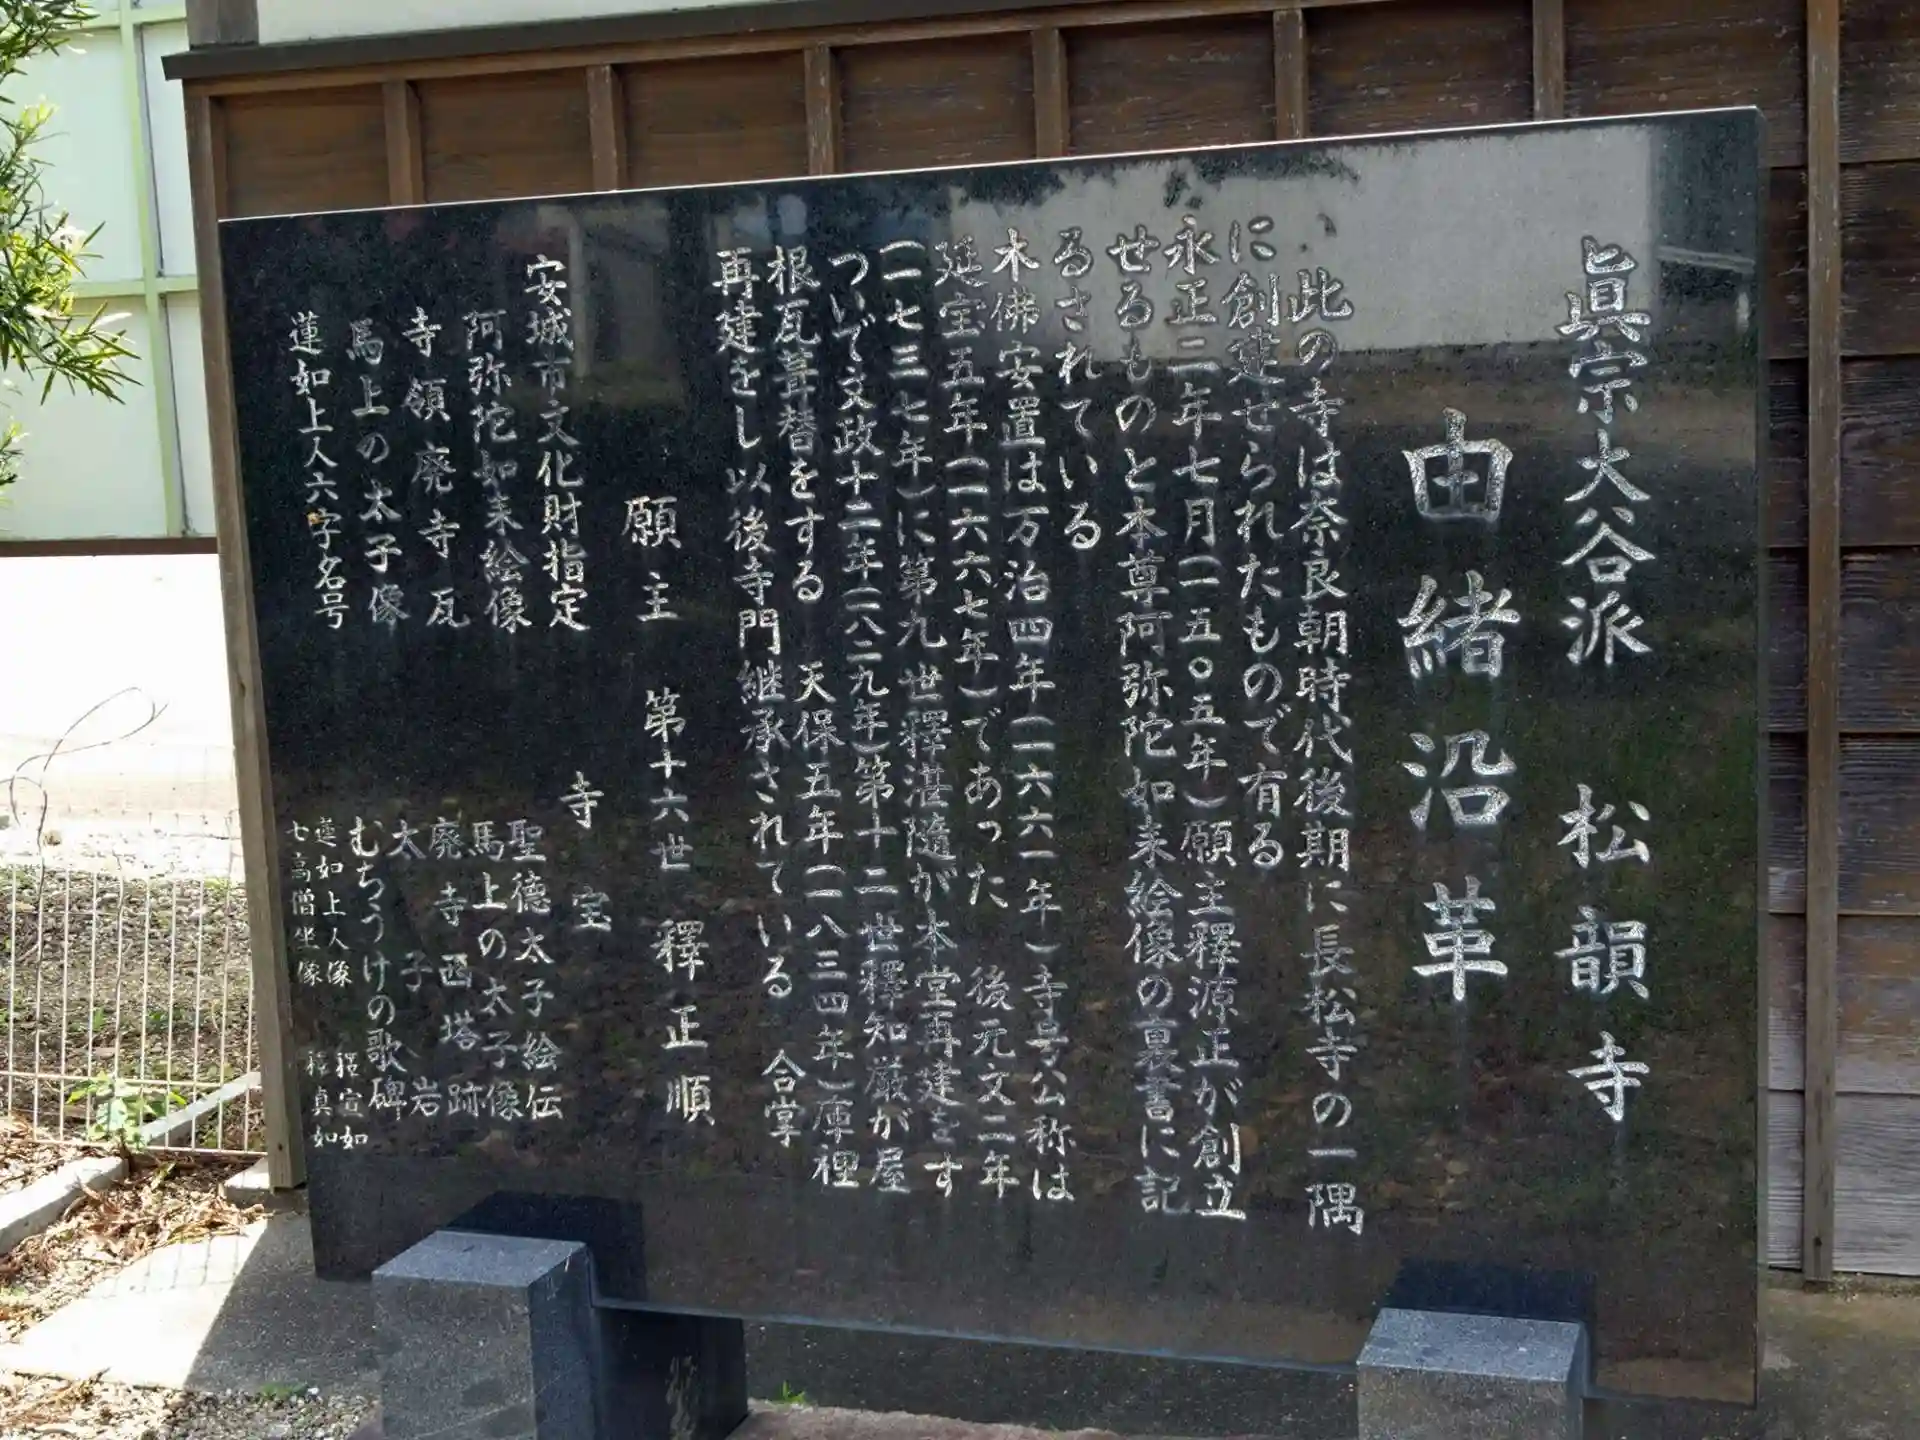 眞宗大谷派 松韻寺
由緒沿革
此の寺は奈良朝時代後期に長松寺の一隅
に創建せられたもので有る
永正二年七月(一五〇五年)願主釋源正が創立
せるものと本尊阿弥陀如来絵像の裏書に記
るされている
木佛安置は万治四年(一六六一年)寺号公称は
延宝五年(一六六七年)であった 後元文二年
(一七三七年)に第九世釋湛隨が本堂再建をす
ついで文政十二年(一八二九年)第十二世釋知厳が屋
根瓦葺替をする 天保五年(一八三四年)庫裡
再建をし以後寺門継承されている 合掌
願主 第十六世 釋正順
寺宝
安城市文化財指定
阿弥陀如来絵像
寺領廃寺瓦
馬上の太子像
蓮如上人六字名号
聖徳太子絵伝
馬上の太子像
廃寺西塔跡
太子岩
むちうけの歌碑
蓮如上人像 釋宣如
七高僧坐像 釋真如